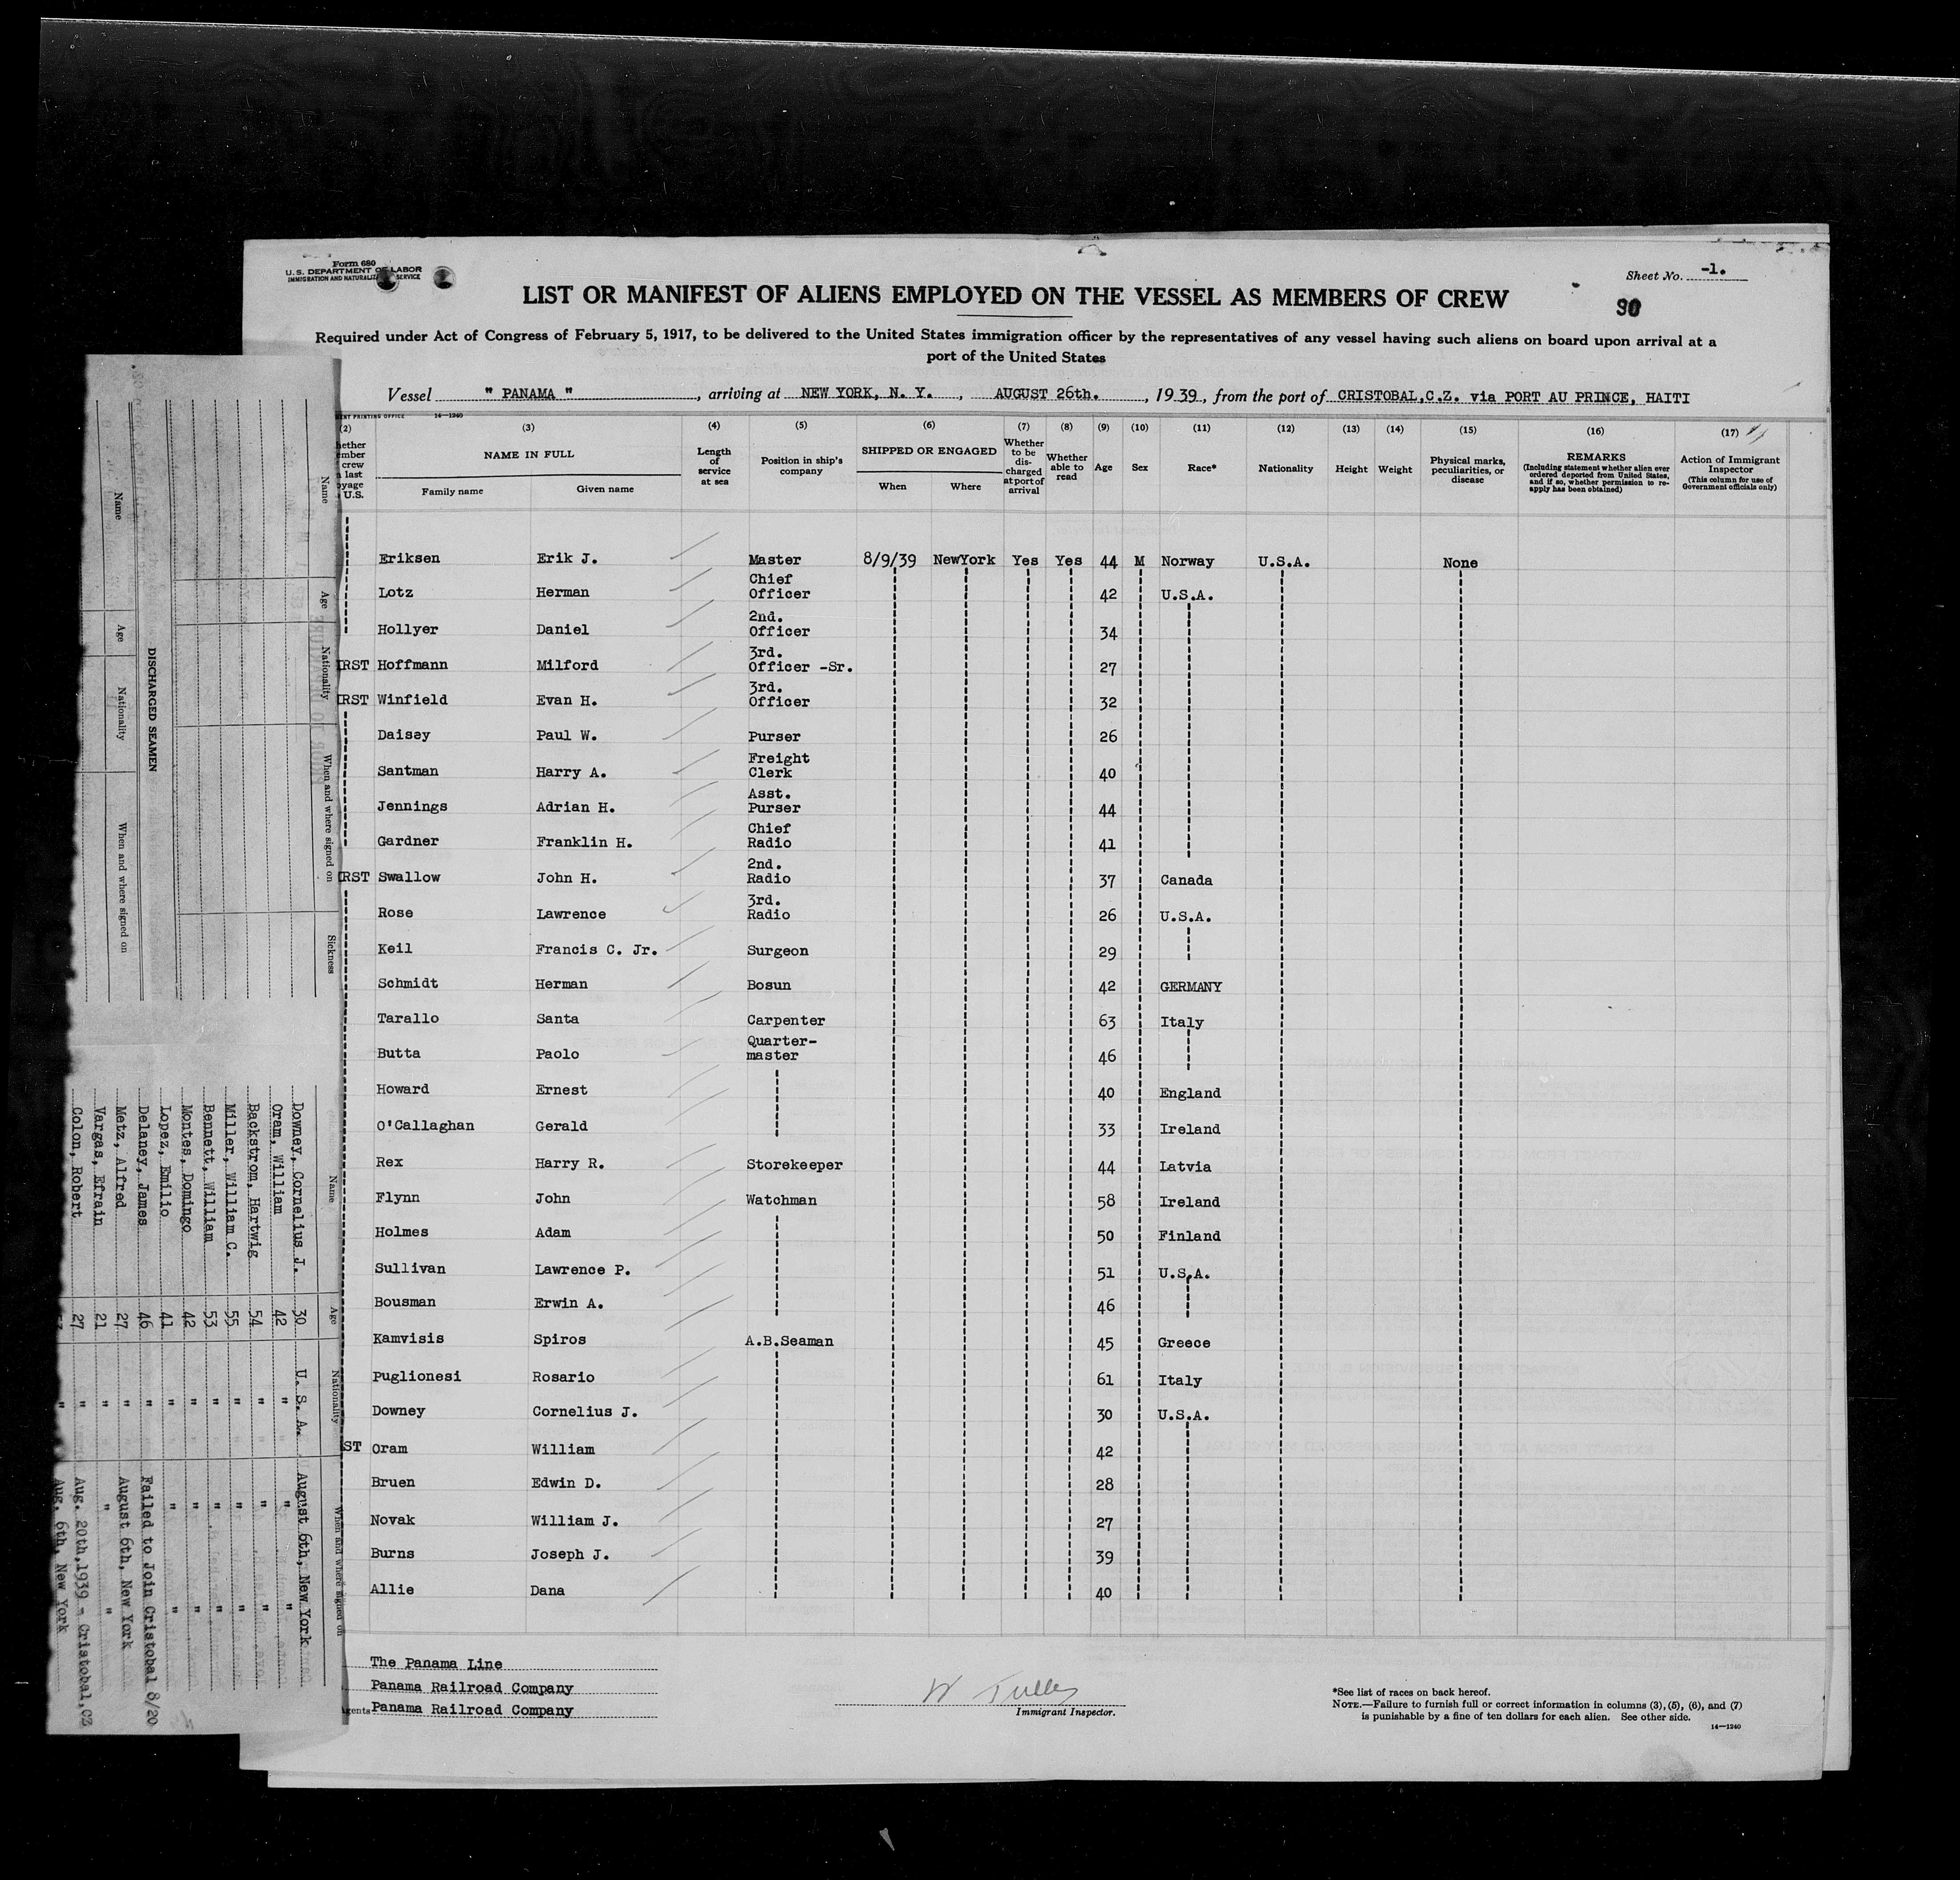 Form 680
U. S. DEPARTMENT OF LABOR
IMMIGRATION AND NATURALIZ SERVICE
Sheet No. -1.
90
LIST OR MANIFEST OF ALIENS EMPLOYED ON THE VESSEL AS MEMBERS OF CREW
Required under Act of Congress of February 5, 1917, to be delivered to the United States immigration officer by the representatives of any vessel having such aliens on board upon arrival at a
port of the United States
Vessel " PANAMA ", arriving at NEW YORK, N. Y., AUGUST 26th., 1939, from the port of CRISTOBAL,C.Z. via PORT AU PRINCE, HAITI
PRINTING OFFICE 14—1240
(2) (3) (4) (5) (6) (7) (8) (9) (10) (11) (12) (13) (14) (15) (16) (17)
crew last U.S.
NAME IN FULL
Family name Given name
Length of service at sea
Position in ship's company
SHIPPED OR ENGAGED
When Where
Whether to be discharged at port of arrival
Whether able to read
Age Sex Race* Nationality Height Weight
Physical marks, peculiarities, or disease
REMARKS
(Including statement whether alien ever ordered deported from United States, and if so, whether permission to re-apply has been obtained)
Action of Immigrant Inspector
(This column for use of Government officials only)
Eriksen Erik J. Master 8/9/39 NewYork Yes Yes 44 M Norway U.S.A. None
Lotz Herman Chief Officer 42 U.S.A.
Hollyer Daniel 2nd. Officer 34
RST Hoffmann Milford 3rd. Officer -Sr. 27
RST Winfield Evan H. 3rd. Officer 32
Daisey Paul W. Purser 26
Santman Harry A. Freight Clerk 40
Jennings Adrian H. Asst. Purser 44
Gardner Franklin H. Chief Radio 41
RST Swallow John H. 2nd. Radio 37 Canada
Rose Lawrence 3rd. Radio 26 U.S.A.
Keil Francis C. Jr. Surgeon 29
Schmidt Herman Bosun 42 GERMANY
Tarallo Santa Carpenter 63 Italy
Butta Paolo Quarter-master 46
Howard Ernest 40 England
O'Callaghan Gerald 33 Ireland
Rex Harry R. Storekeeper 44 Latvia
Flynn John Watchman 58 Ireland
Holmes Adam 50 Finland
Sullivan Lawrence P. 51 U.S.A.
Bousman Erwin A. 46
Kamvisis Spiros A.B.Seaman 45 Greece
Puglionesi Rosario 61 Italy
Downey Cornelius J. 30 U.S.A.
ST Oram William 42
Bruen Edwin D. 28
Novak William J. 27
Burns Joseph J. 39
Allie Dana 40
The Panama Line
Panama Railroad Company
gents Panama Railroad Company
W Tulley
Immigrant Inspector.
*See list of races on back hereof.
NOTE.—Failure to furnish full or correct information in columns (3), (5), (6), and (7)
is punishable by a fine of ten dollars for each alien. See other side.
14—1240
Name Age Nationality When and where signed on Sickness
DISCHARGED SEAMEN
Name Age Nationality When and where signed on
Name Age Nationality When and where signed on
Downey, Cornelius J. 30 U. S. A. August 6th, New York
Oram, William 42 " " "
Backstrom, Hartwig 54 " " "
Miller, William C. 55 " " "
Bennett, William 53 " " "
Montes, Domingo 42 " " "
Lopez, Emilio 41 " " "
Delaney, James 46 " Failed to Join Cristobal 8/20
Metz, Alfred 27 " August 6th, New York
Vargas, Efrain 21 " " "
Colon, Robert 27 " Aug. 20th,1939 - Cristobal,CZ
" Aug. 6th, New York